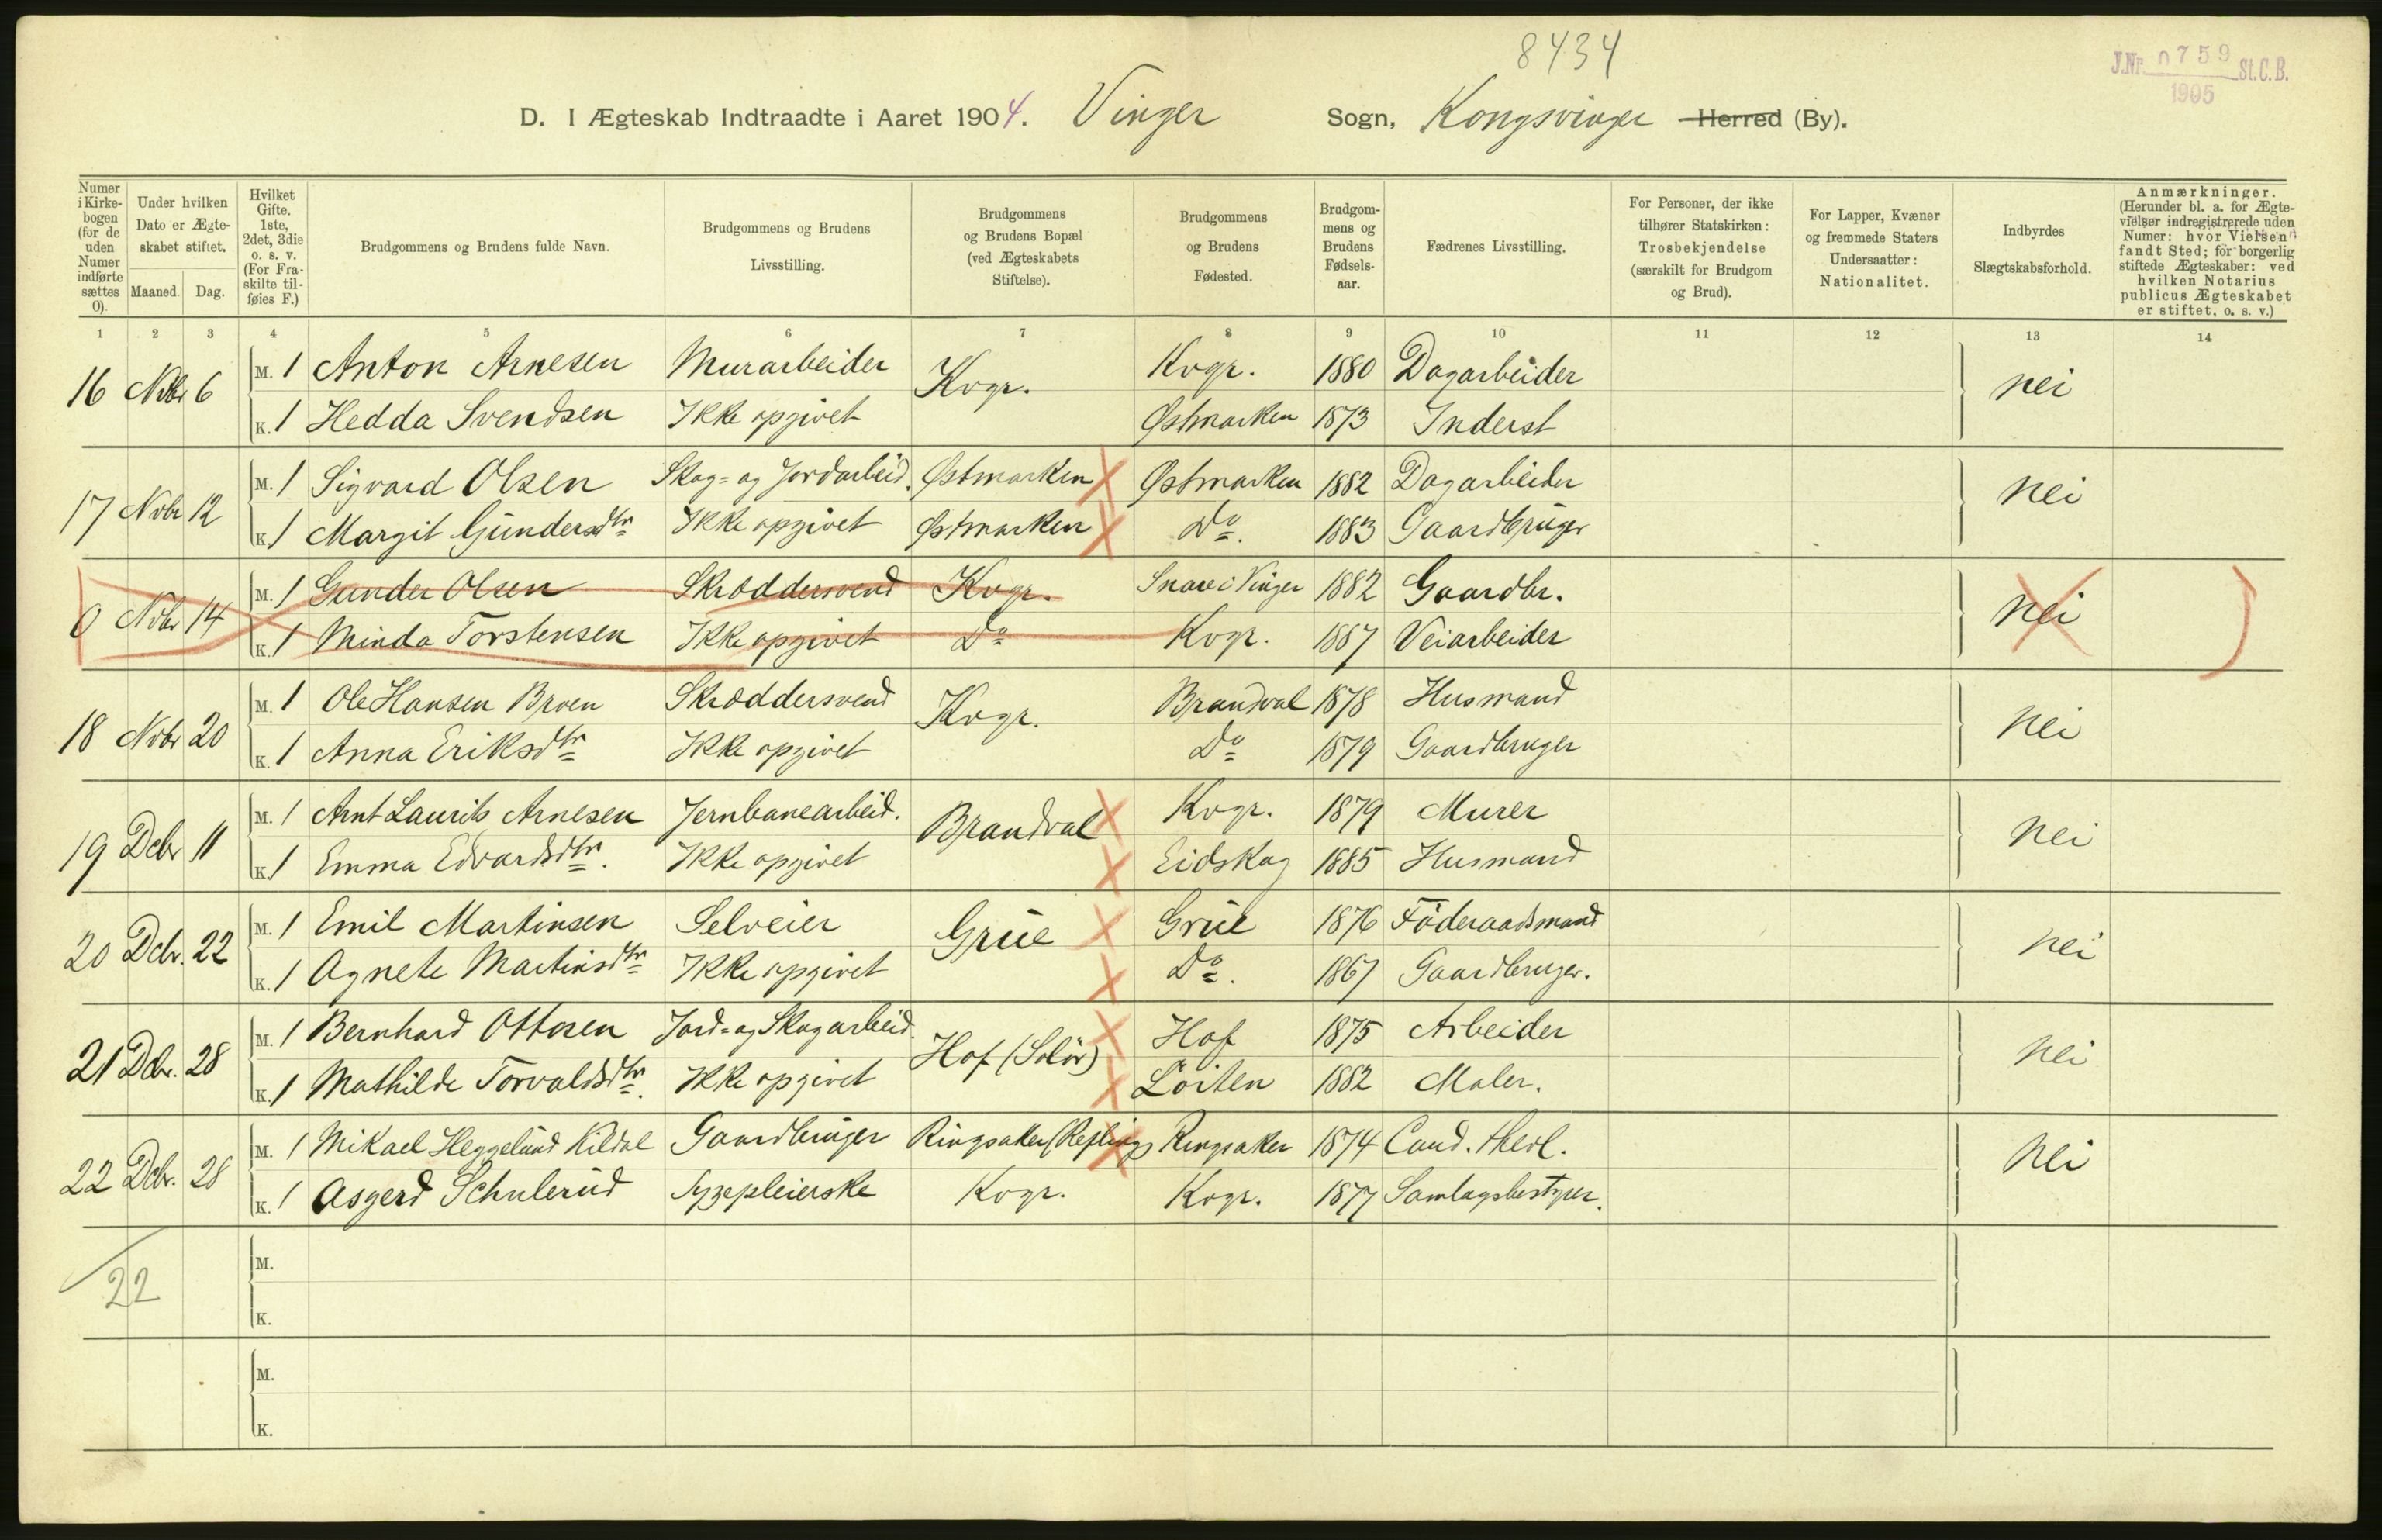 8434
J.Nr. 0759 St.C.B.
1905
D. I Ægteskab Indtraadte i Aaret 1904. Vinger Sogn, Kongsvinger Herred (By).
Numer i Kirke-bogen (for de uden Numer indførte sættes 0).
Under hvilken Dato er Ægte-skabet stiftet.
Maaned. Dag.
Hvilket Gifte. 1ste, 2det, 3die o. s. v. (For Fra-skilte til-føies F.)
Brudgommens og Brudens fulde Navn.
Brudgommens og Brudens Livsstilling.
Brudgommens og Brudens Bopæl (ved Ægteskabets Stiftelse).
Brudgommens og Brudens Fødested.
Brudgom-mens og Brudens Fødsels-aar.
Fædrenes Livsstilling.
For Personer, der ikke tilhører Statskirken: Trosbekjendelse (særskilt for Brudgom og Brud).
For Lapper, Kvæner og fremmede Staters Undersaatter: Nationalitet.
Indbyrdes Slægtskabsforhold.
Anmærkninger. (Herunder bl. a. for Ægte-vielser indregistrerede uden Numer: hvor Vielsen fandt Sted; for borgerlig stiftede Ægteskaber: ved hvilken Notarius publicus Ægteskabet er stiftet, o. s. v.)
1 2 3 4 5 6 7 8 9 10 11 12 13 14
16 Nvbr 6 M. 1 Anton Arnesen Murarbeider Kvgr. Kvgr. 1880 Dagarbeider nei
K. 1 Hedda Svendsen Ikke opgivet Østmarken 1873 Inderst
17 Nvbr 12 M. 1 Sigvard Olsen Skog= og Jordarbeid. Østmarken Østmarken 1882 Dagarbeider nei
K. 1 Margit Gundersdtr Ikke opgivet Østmarken Do. 1883 Gaardbruger
0 Nvbr 14 M. 1 Gunder Olsen Skræddersvend Kvgr. Snare i Vinger 1882 Gaardbr. nei
K. 1 Minda Torstensen Ikke opgivet Do Kvgr. 1887 Veiarbeider
18 Nvbr 20 M. 1 Ole Hansen Broen Skræddersvend Kvgr. Brandval 1878 Husmand nei
K. 1 Anna Eriksdtr Ikke opgivet Do 1879 Gaardbruger
19 Dcbr 11 M. 1 Arnt Laurits Arnesen Jernbanearbeid. Brandval Kvgr. 1879 Murer nei
K. 1 Emma Edvardsdtr. Ikke opgivet Eidskog 1885 Husmand
20 Dcbr. 22 M. 1 Emil Martinsen Selveier Grue Grue 1876 Föderaadsmand nei
K. 1 Agnete Martinsdtr Ikke opgivet Do. 1867 Gaardbruger.
21 Dcbr. 28 M. 1 Bernhard Ottosen Jord= og Skogarbeid. Hof (Solör) Hof 1875 Arbeider nei
K. 1 Mathilde Torvaldsdtr. Ikke opgivet Löiten 1882 Maler.
22 Dcbr. 28 M. 1 Mikael Heggelund Kildal Gaardbruger Ringsaker Ringsaker 1874 Cand. theol. nei
K. 1 Asgerd Schulerud Sygepleierske Kvgr. Kvgr. 1877 Samlagsbestyrer.
22
M.
K.
M.
K.